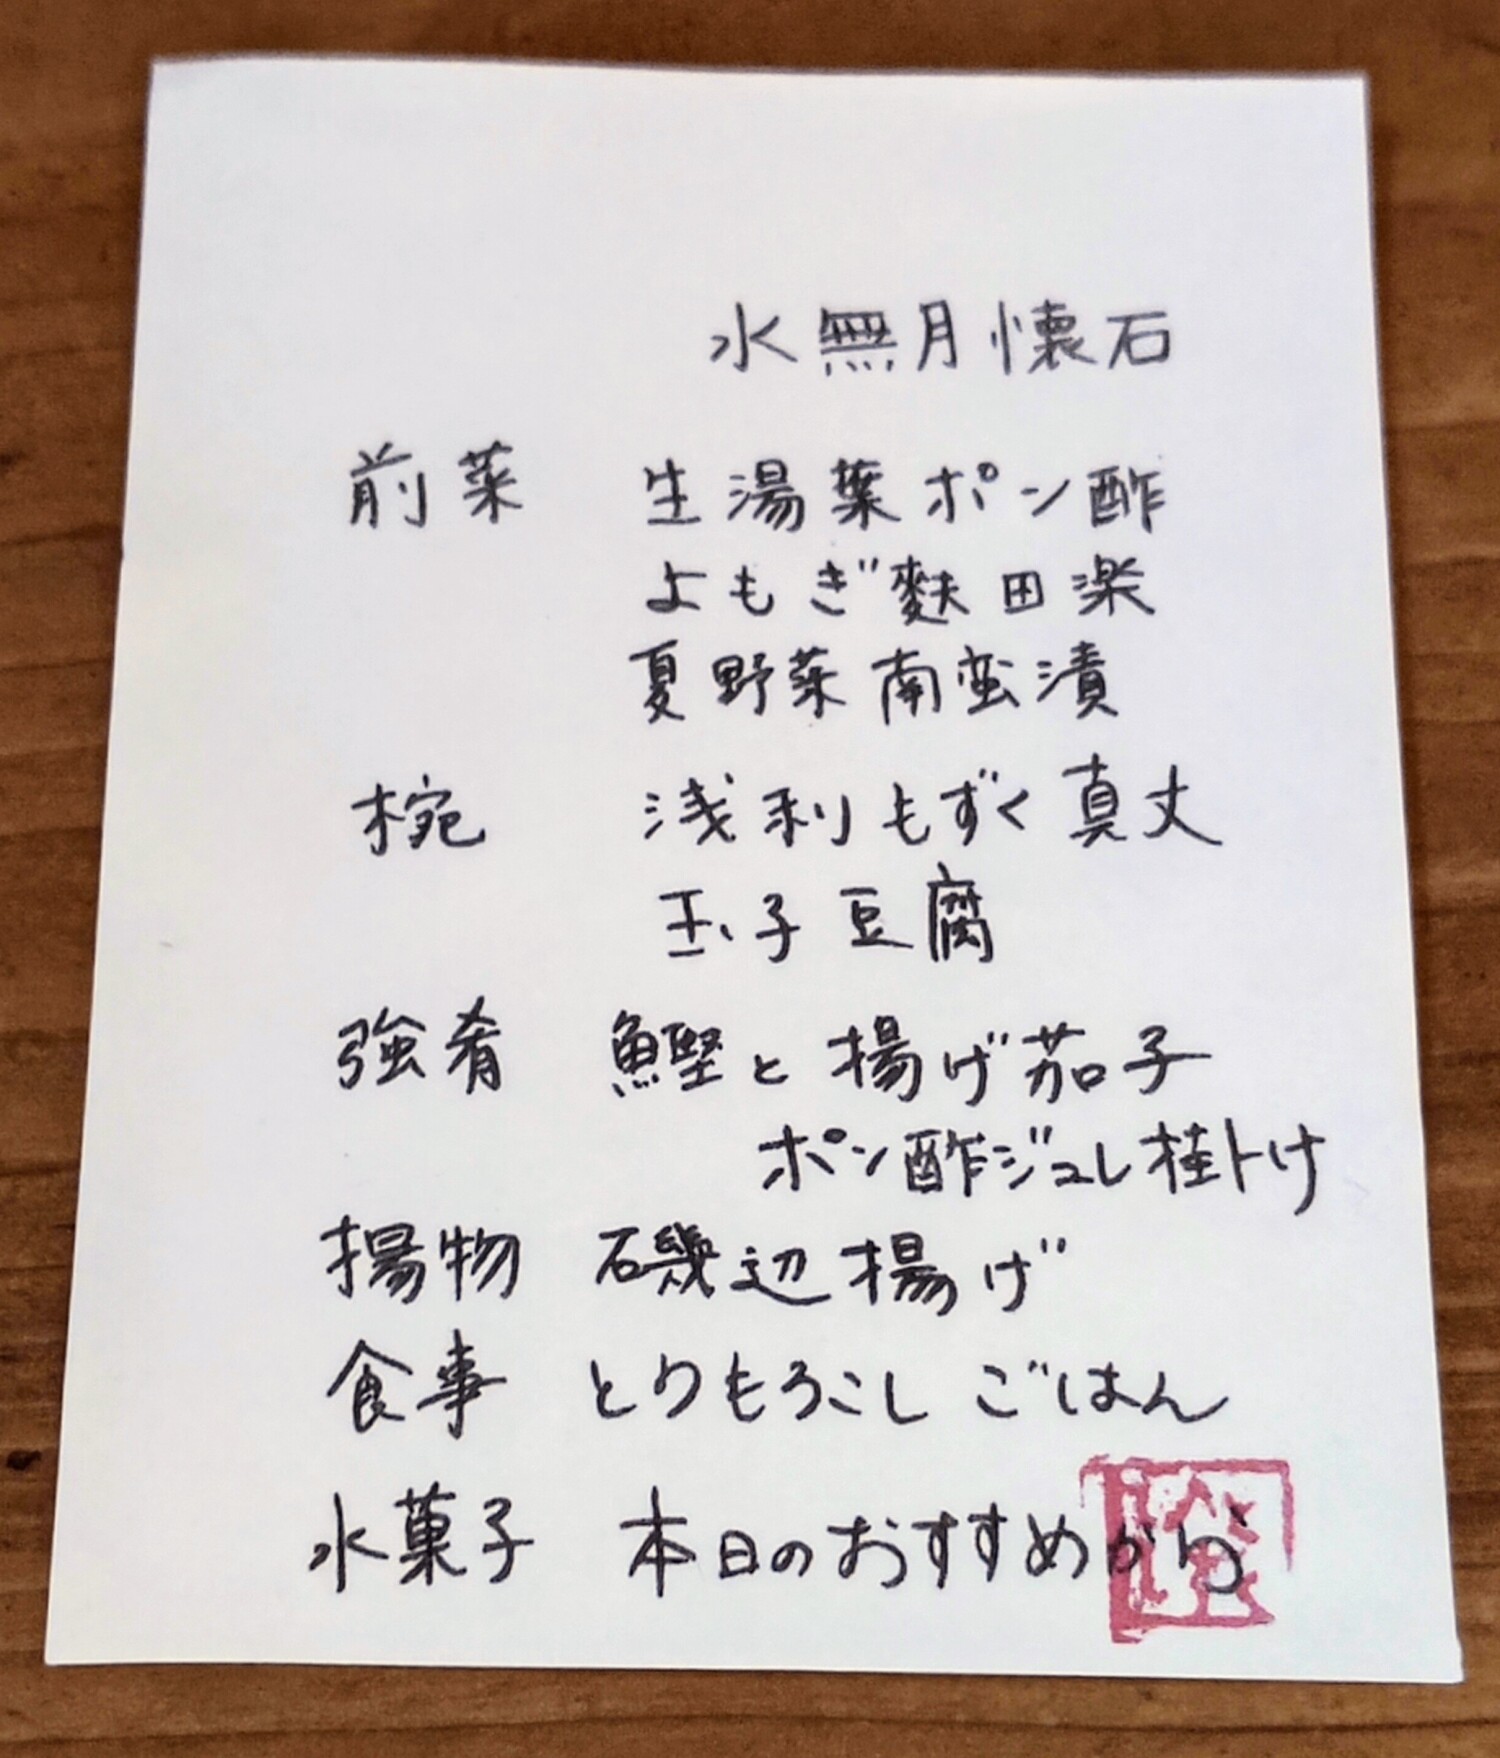 水無月懐石
前菜 生湯葉ポン酢
よもぎ麩田楽
夏野菜南蛮漬
椀 浅利もずく真丈
玉子豆腐
強肴 鰹と揚げ茄子
ポン酢ジュレ掛け
揚物 磯辺揚げ
食事 とうもろこしごはん
水菓子 本日のおすすめから